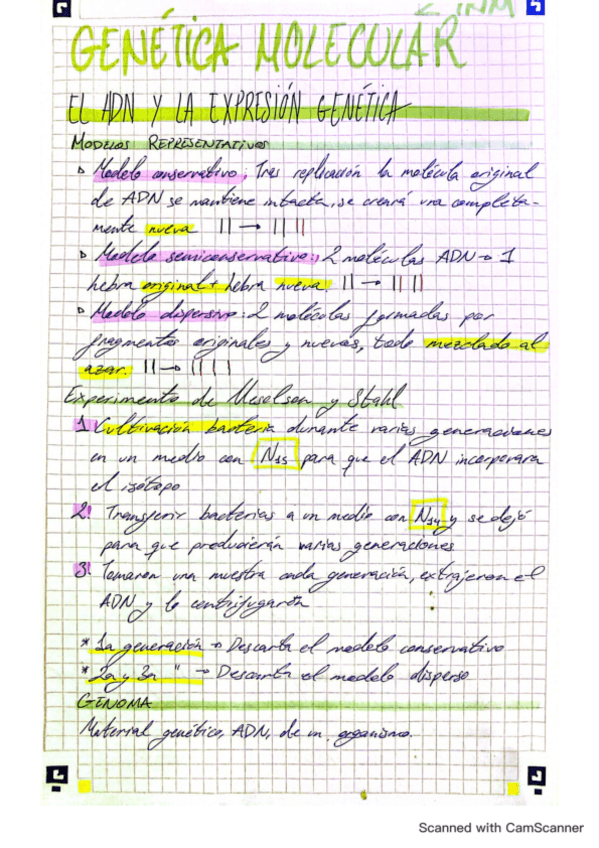 INM
GENÉTICA MOLECULAR
EL ADN Y LA EXPRESIÓN GENÉTICA
MODELOS REPRESENTATIVOS
Modelo conservativo: Tras replicación la molécula original
de ADN se mantiene intacta, se creará una completa-
mente nueva || → || ||
Modelo semiconservativo: 2 moléculas ADN → 1
hebra original + hebra nueva. || → || ||
Modelo dispersivo: 2 moléculas formadas por
fragmentos originales y nuevos, todo mezclado al
azar. || → || ||
Experimento de Meselson y Stahl
1 Cultivación bacteria durante varias generaciones
en un medio con N15 para que el ADN incorporara
el isótopo
2! Transferir bacterias a un medio con N14 y se dejó
para que producierán varias generaciones
3! Tomaron una muestra cada generación, extrajeron el
ADN y lo centrifugaron
* 1a generación → Descarta el modelo conservativo
* 2a y 3a " → Descarta el modelo disperso
GENOMA
Material genético, ADN, de un organismo.
Scanned with CamScanner